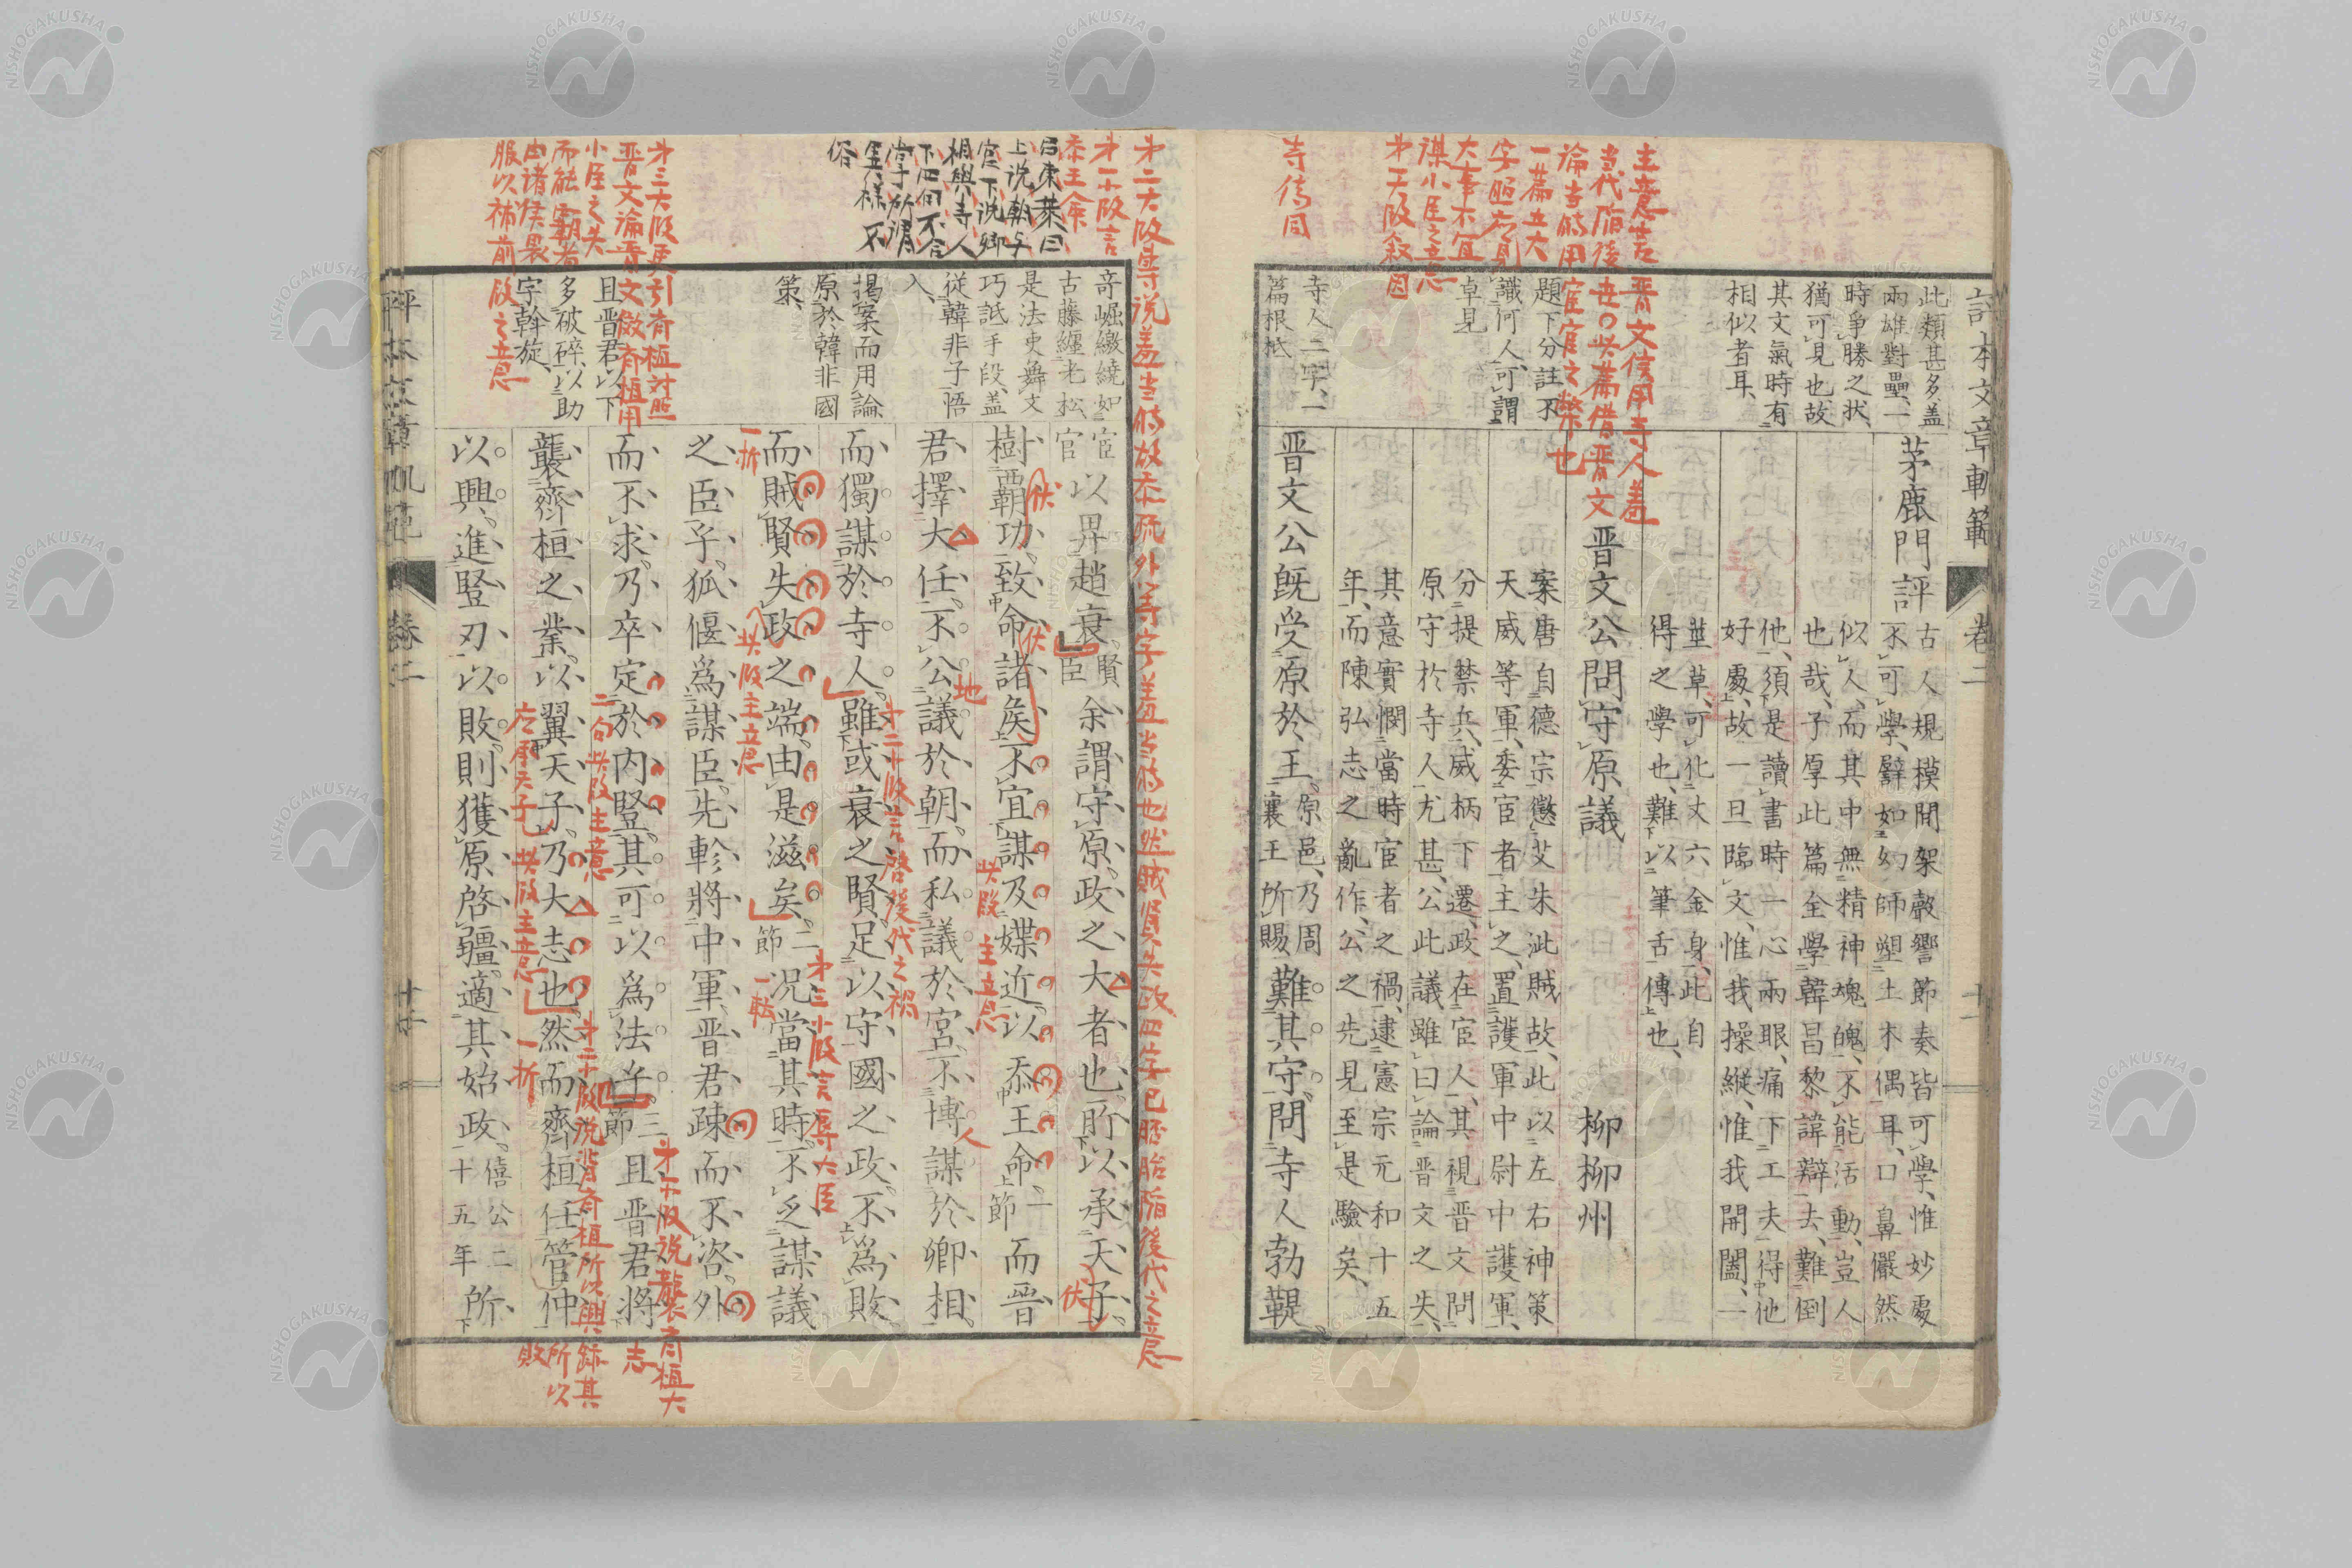 評本文章軌範
卷二
此類甚多、蓋
兩雄對壘、一
時爭勝之状、
猶可見也、故
其文氣時有
相似者耳、
題下分註、不
識何人、可謂
卓見
寺人二字、一
篇根柢
茅鹿門評
古人規模間架聲響節奏皆可學、惟妙處
不可學、譬如幻師塑土木偶耳、口鼻儼然
似人、而其中無精神魂魄、不能活動、豈人
也哉、子厚此篇全學韓昌黎諱辯去、難倒
他、須是讀書時一心兩眼、痛下工夫、得他
好處、故一旦臨文、惟我操縱、惟我開闔、一
莖草、可化丈六金身、此自
得之學也、難以筆舌傳也、
晋文公問守原議
柳柳州
案唐自德宗懲艾朱泚賊故、此以左右神策
天威等軍、委宦者主之、置護軍中尉中護軍、
分提禁兵、威柄下遷、政在宦人、其視晋文問
原守於寺人尤甚、公此議雖曰論晋文之失、
其意實憫當時宦者之禍、逮憲宗元和十五
年、而陳弘志之亂作、公之先見至是驗矣、
晋文公既受原於王、原邑、乃周襄王所賜難其守、問寺人勃鞮、
主意言晋文信用寺人羞
当代貽後世〇此篇借晋文
論当時用宦官之弊也
一篇五大
字照応見
大事不宜
謀小臣之意
才一大段叙因
寺侍同
才二大段専说羞当時故忝硫外等字羞当時也然賊賢失政四字已胚胎貽後代之意
才一小段言
忝王命
呂東莱曰
上说朝与
宮下说卿
相與寺人
下四句不合
掌子所謂
異様不
俗
奇崛繳繞如
古藤纏老松、
是法吏舞文
巧詆手段、蓋
從韓非子悟
入、
揭案而用論
原於韓非國
策、
且晋君以下
多破碎、以助
字斡旋、
宦官以畀趙衰、賢臣余謂守原、政之大者也、所以承天子、
樹霸功、致命諸矦、不宜謀及媟近、以忝王命、一節而晋
君擇大任、不公議於朝、而私議於宮、不博謀於卿相、
而獨謀於寺人、雖或衰之賢足以守國之政不爲敗、
而賊賢失政之端、由是滋矣、二節况當其時不乏謀議
之臣子、狐偃爲謀臣、先軫將中軍、晋君疎而不咨、外
而不求、乃卒定於内豎、其可以爲法乎、三節且晋君將
襲齊桓之業、以翼天子、乃大志也、然而齊桓任管仲
以興、進豎刃以敗、則獲原啓疆、適其始政、僖公二十五年所
伏
伏
地
人
伏
此段主意
才二小段言啓後代之禍
才三小段言辱大臣
一転
一折
此段主意
才三大段更引斉桓対照
晋文論晋文傚斉桓用
小臣之失
而能霸者
由諸侯畏
服以補前段之意
才一小段说襲斉桓大
志
二句此段主意
才二小段说背斉桓所以興跡其
所以
敗
応承天子
此段主意
一折
評本文章軌範
卷二